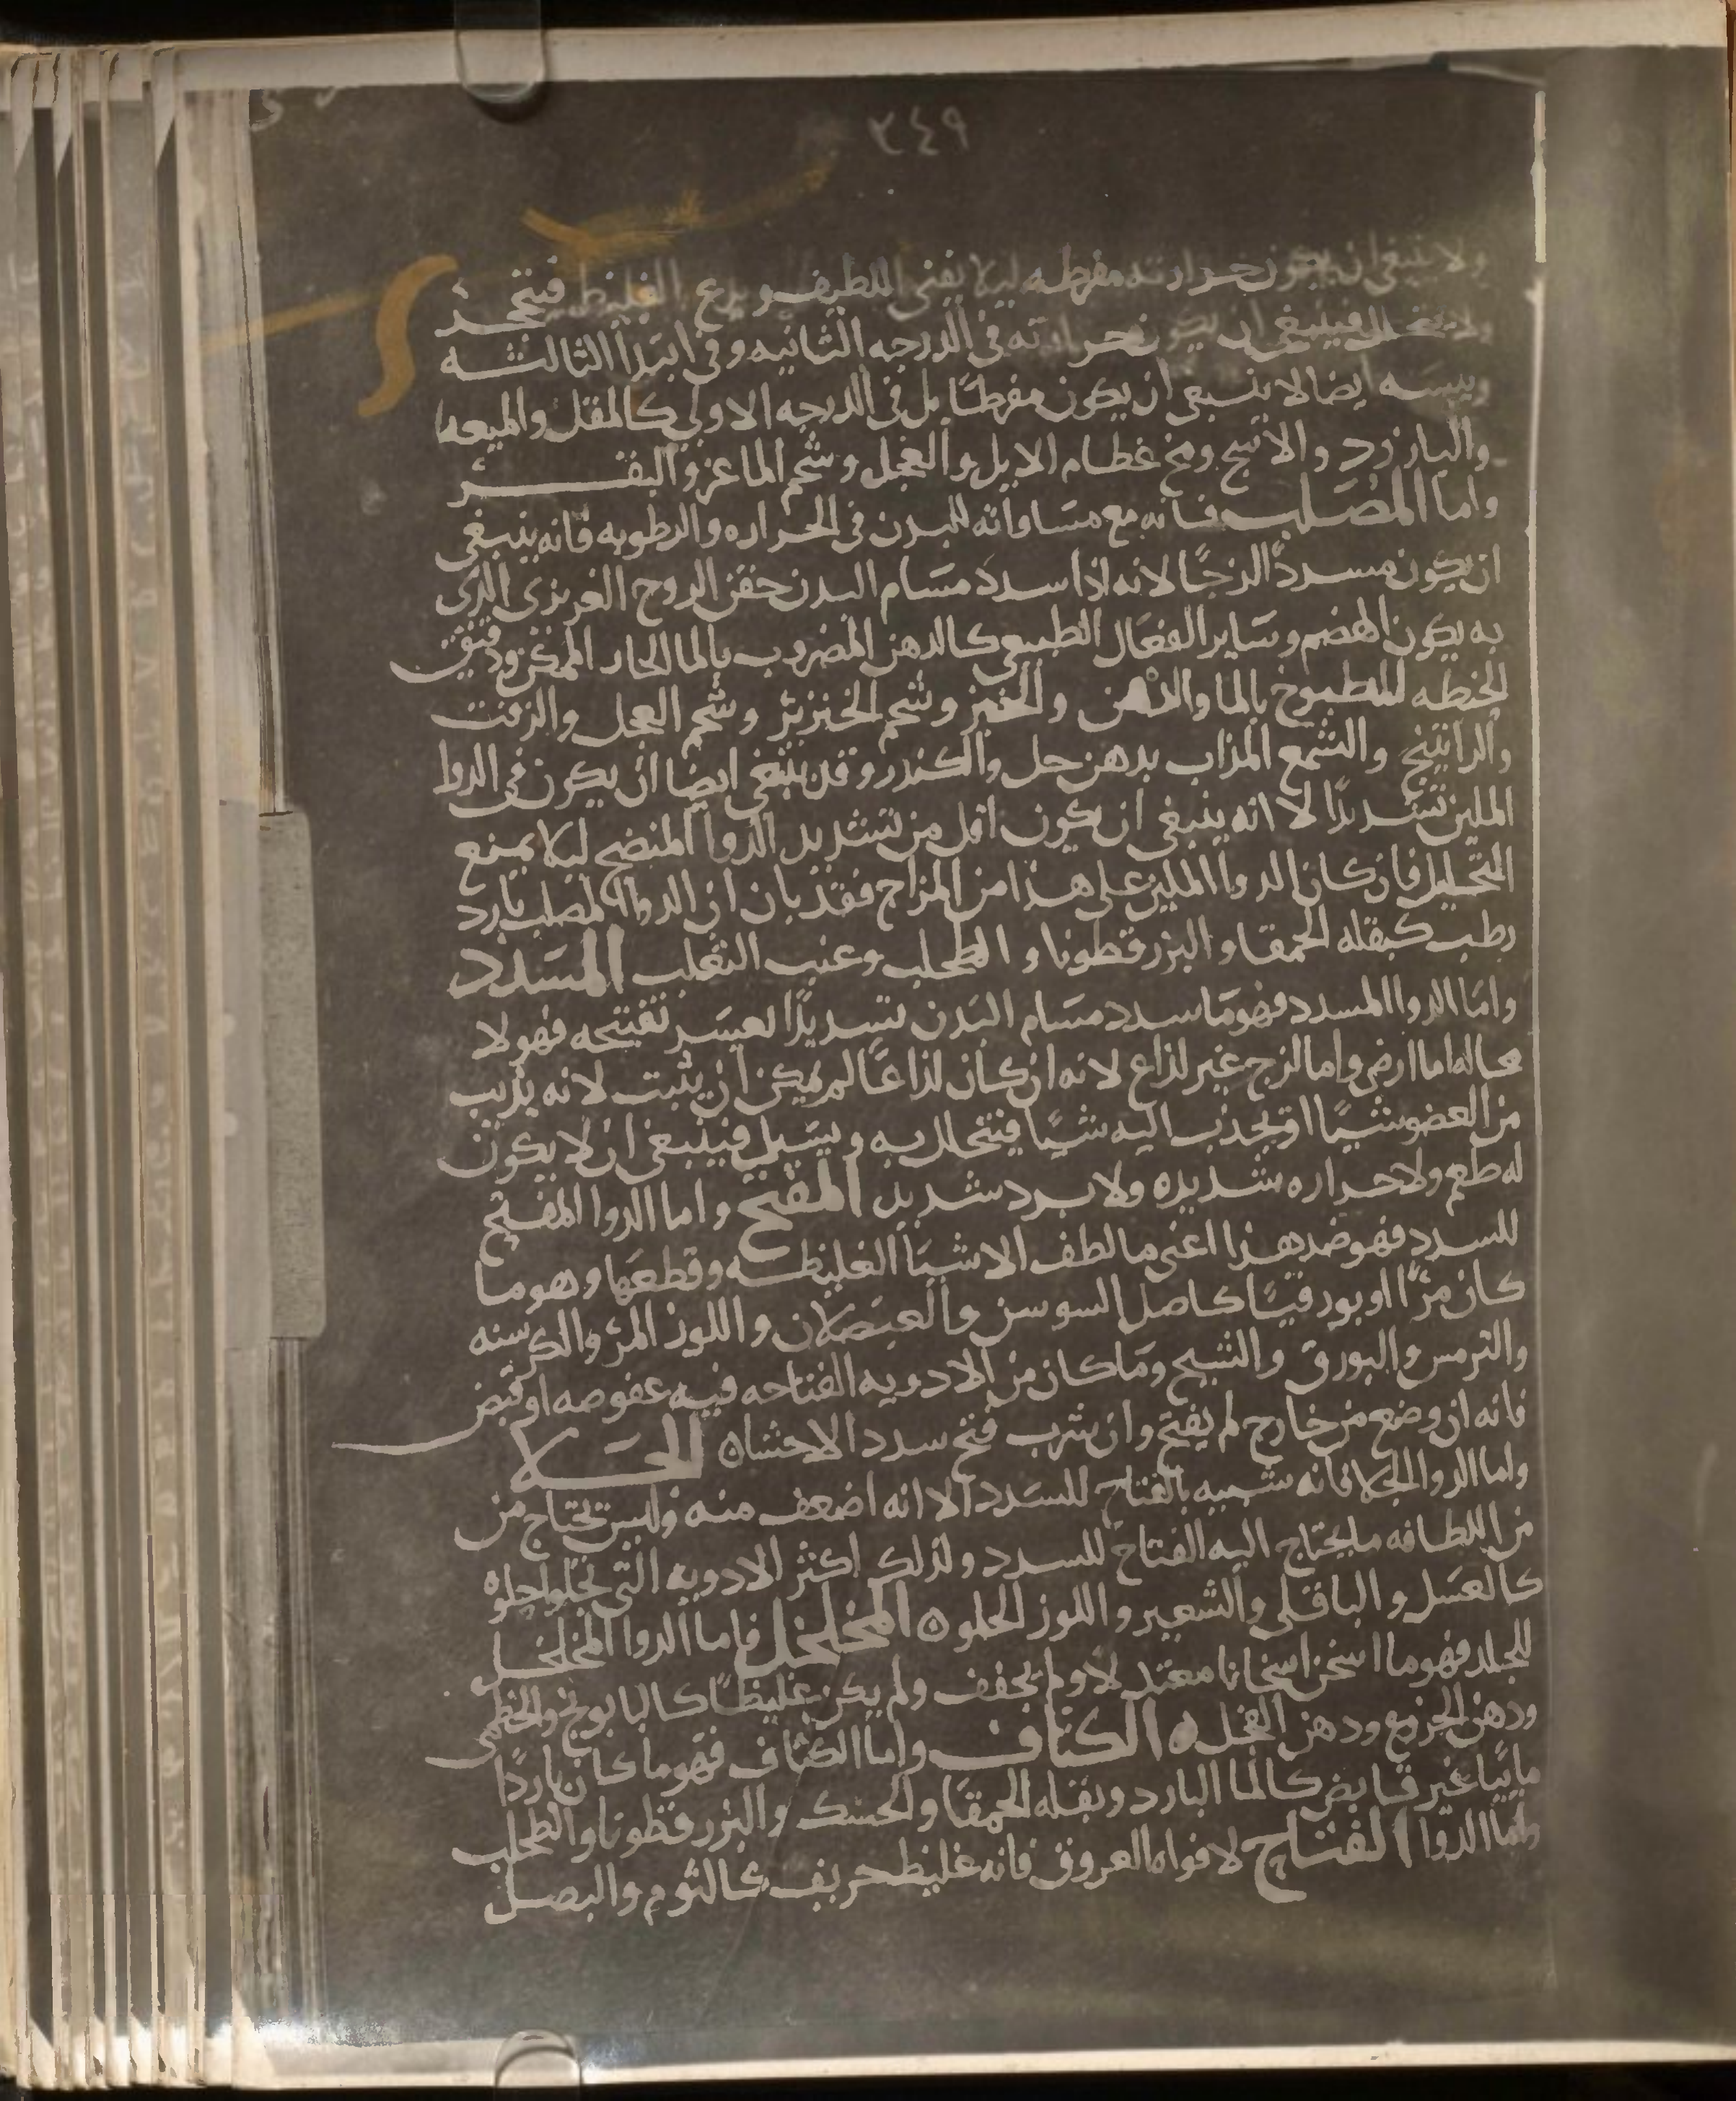 ٢٤٩
ولا ينبغي ان يكون حرارته مفرطه ليلا يفنى اللطيف ويدع الغليظ فيتحجر
ولا ينحل فينبغي ان يكون حرارته في الدرجه الثانيه وفي ابتدا الثالثه
ويبسه ايضا لا ينبغي ان يكون مفرطًا بل في الدرجه الاولي كالمقل والميعه
والبارزد والاشج ومخ عظام الابل والعجل وشحم الماعز والبقر
واما المصلب فانه مع مساواته للبدن في الحراره والرطوبه فانه ينبغي
ان يكون مسددًا لزجًا لانه اذا سدد مسام البدن حقن الروح الغريزي الذي
به يكون الهضم وساير الفعال الطبيعي كالدهن المضروب بالما الحار الممكن ودقيق
الحنطه المطبوخ بالما والدهن والخبز وشحم الخنزير وشحم العجل والزفت
والراتينج والشمع المذاب بدهن حل والكندر وقد ينبغي ايضا ان يكون في الدوا
الملين تسديدًا لا انه ينبغي ان يكون اقل من تسديد الدوا المنضج ليلا يمنع
التحليل فان كان الدوا الملين على هذا من المزاج فقد بان ان الدوا المصلب بارد
رطب كبقله الحمقا والبزر قطونا والطحلب وعنب الثعلب المسدد
واما الدوا المسدد فهو ما سدد مسام البدن تسديدًا لعيسر تفتيحه فهو لا
محاله اما ارضي واما لزج غير لذاع لانه ان كان لذاعًا لم يمكن ان يثبت لانه يذيب
من العضو شيًا او يجذب اليه شيًا فيتحلل به ويسيل فينبغي ان لا يكون
له طعم ولا حراره شديده ولا برد شديد المفتح واما الدوا المفتح
للسدد فهو ضد هذا اعني ما لطف الاشيا الغليظه وقطعها وهو ما
كان مرًّا او بورقيًا كاصل السوسن والعنصلان واللوز المر والكرسنه
والترمس والبورق والشيح وما كان من الادويه الفتاحه فيه عفوصه او قبض
فانه ان وضع من خارج لم يفتح وان شرب فتح سدد الاحشا ه الجلا
واما الدوا الجلا فانه شبيه بالفتاح للسدد الا انه اضعف منه وليس تحتاج من
من اللطافه ما يحتاج اليه الفتاح للسدد ولذلك اكثر الادويه التي تجلوا حلوه
كالعسل والباقلى والشعير واللوز الحلو ه المخلخل فاما الدوا المخلخل
للجلد فهو ما اسخن اسخانا معتدلا ولم يجفف ولم يكن غليظًا كالبابونج والخطمي
ودهن الخروع ودهن الفجل ه الكثاف واما الكثاف فهو ما كان باردًا
مائيًا غير قابض كالما البارد وبقله الحمقا والحسك والبزر قطونا والطحلب
واما الدوا الفتاح لافواه العروق فانه غليظ حريف كالثوم والبصل